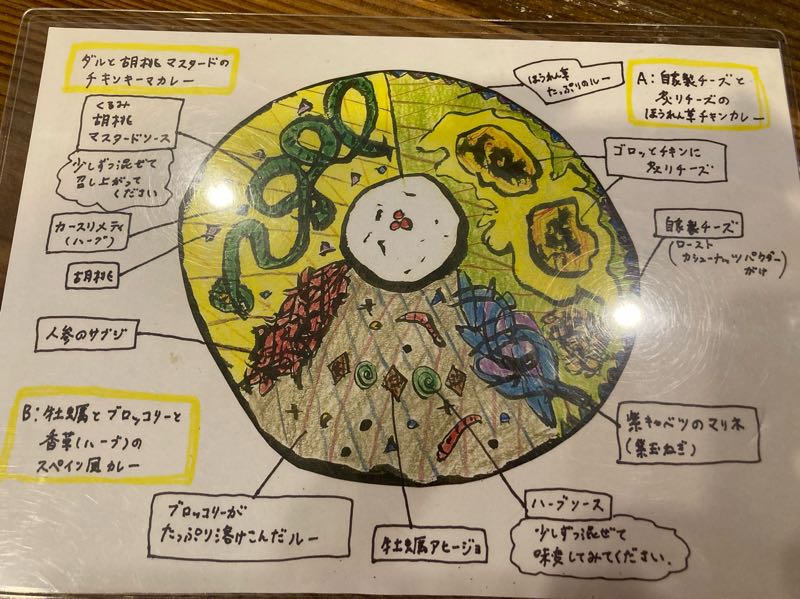 ダルと胡桃マスタードの
チキンキーマカレー
くるみ
胡桃
マスタードソース
少しずつ混ぜて
召し上がって
ください
カースリメティ
(ハーブ)
胡桃
人参のサブジ
B:牡蠣とブロッコリーと
香草(ハーブ)の
スペイン風カレー
ブロッコリーが
たっぷり溶けこんだルー
牡蠣アヒージョ
ハーブソース
少しずつ混ぜて
味変してみてください.
紫キャベツのマリネ
(紫玉ねぎ)
自家製チーズ
(ロースト
カシューナッツパウダー
がけ)
ゴロッとチキンに
炙りチーズ
A:自家製チーズと
炙りチーズの
ほうれん草チキンカレー
ほうれん草
たっぷりのルー